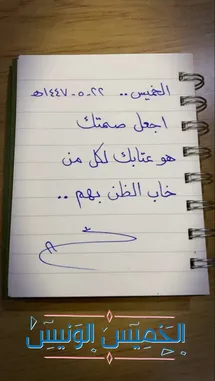 الخميس.. ٢٢-٥-١٤٤٧هـ
اجعل صمتك
هو عتابك لكل من
خاب الظن بهم ..
الخَمِيسَ الوَنِيسَ